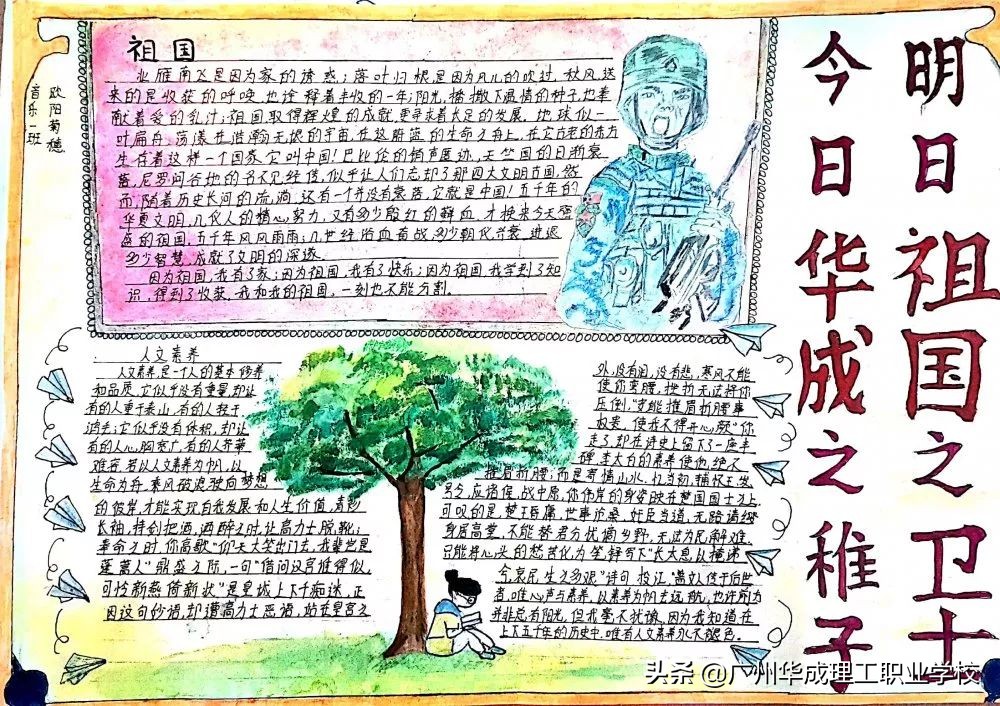 欧阳菊穗
音乐一班
祖国
北雁南飞是因为家的诱惑；落叶归根是因为风儿的吹过，秋风送
来的是收获的呼唤，也诠释着丰收的一年；阳光，播撒下温情的种子，也奉
献着爱的乳汁；祖国取得辉煌的成就，更寻求着长足的发展。地球似一
叶扁舟，荡漾在浩瀚无垠的宇宙，在这脏篮的生命之舟上，在它古老的东方
生存着这样一个国家，它叫中国！巴比伦的销声匿迹，天竺国的日渐衰
落，尼罗河谷地的名不见经传，似乎让人们忘却了那四大文明古国，然
而，随着历史长河的流淌，还有一个并没有衰落，它就是中国！五千年的
华夏文明，几代人的精心努力，又有多少殷红的鲜血，才换来今天强
盛的祖国，五千年风风雨雨；几世经浴血奋战，多少朝代兴衰，进退
多少智慧，成就了文明的深邃。
因为祖国，我有了家；因为祖国，我有了快乐；因为祖国，我学到了知
识，得到了收获。我和我的祖国，一刻也不能分割。
人文素养
人文素养，是一个人的基本修养
和品质，它似乎没有重量，却让
有的人重于泰山，有的人轻于
鸿毛；它似乎没有体积，却让
有的人心胸宽广，有的人开幕
难容，若以人文素养为帆，以
生命为舟，乘风破浪，驶向梦想
的彼岸，才能实现自我发展和人生价值，青衫
长袖，持剑把酒，酒醉之时，让高力士脱靴；
革命之时，你高歌“仰天大笑出门去，我辈岂是
蓬蒿人”鼎盛之际，一句“借问汉宫谁得似，
可怜新燕倚新妆”是皇城上下千痴迷，正
因这句妙语，却遭高力士恶语，站在皇宫之
外，没有泪，没有悲，寒风不能
使你弯腰，挫折无法将你
压倒，“安能摧眉折腰事
权贵，使我不得开心颜”你
走了，却在诗史上留下了一座丰
碑，李太白的素养使他，绝不
摧眉折腰；而是寄情山水，
可叹的是，楚王昏庸，世事沧桑，奸臣当道，无路请缨
身居高堂，不能替君分忧，
只能将心头的愁苦化为笔，
上下五千年的历史中，唯有人文素养永不褪色。
明日祖国之卫士
今日华成之稚子
头条 @广州华成理工职业学校